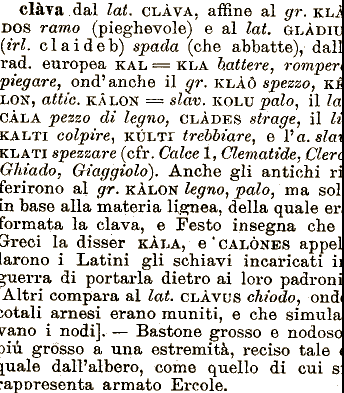 clàva dal lat. CLÀVA, affine al gr. KLÀ
DOS ramo (pieghevole) e al lat. GLÀDIU
(irl. claideb) spada (che abbatte), dall
rad. europea KAL = KLA battere, romper
piegare, ond'anche il gr. KLÂÔ spezzo, KÊ
LON, attic. KÂLON = slav. KOLU palo, il la
CÀLA pezzo di legno, CLÀDES strage, il li
KALTI colpire, KÙLTI trebbiare, e l'a. slav
KLATI spezzare (cfr. Calce 1, Clematide, Clero
Ghiado, Giaggiolo). Anche gli antichi ri
ferirono al gr. KÀLON legno, palo, ma sol
in base alla materia lignea, della quale er
formata la clava, e Festo insegna che
Greci la disser KÀLA, e CALÒNES appel
larono i Latini gli schiavi incaricati i
guerra di portarla dietro ai loro padroni
[Altri compara al lat. CLÀVUS chiodo, ond
cotali arnesi erano muniti, e che simula
vano i nodi]. — Bastone grosso e nodoso
più grosso a una estremità, reciso tale
quale dall'albero, come quello di cui s
rappresenta armato Ercole.